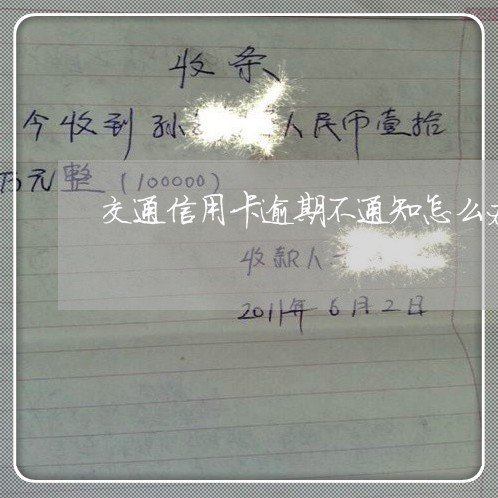 收条
今收到孙 人民币壹拾
万元整（100000）
交通信用卡逾期不通知怎么
收款人
2011年6月2日